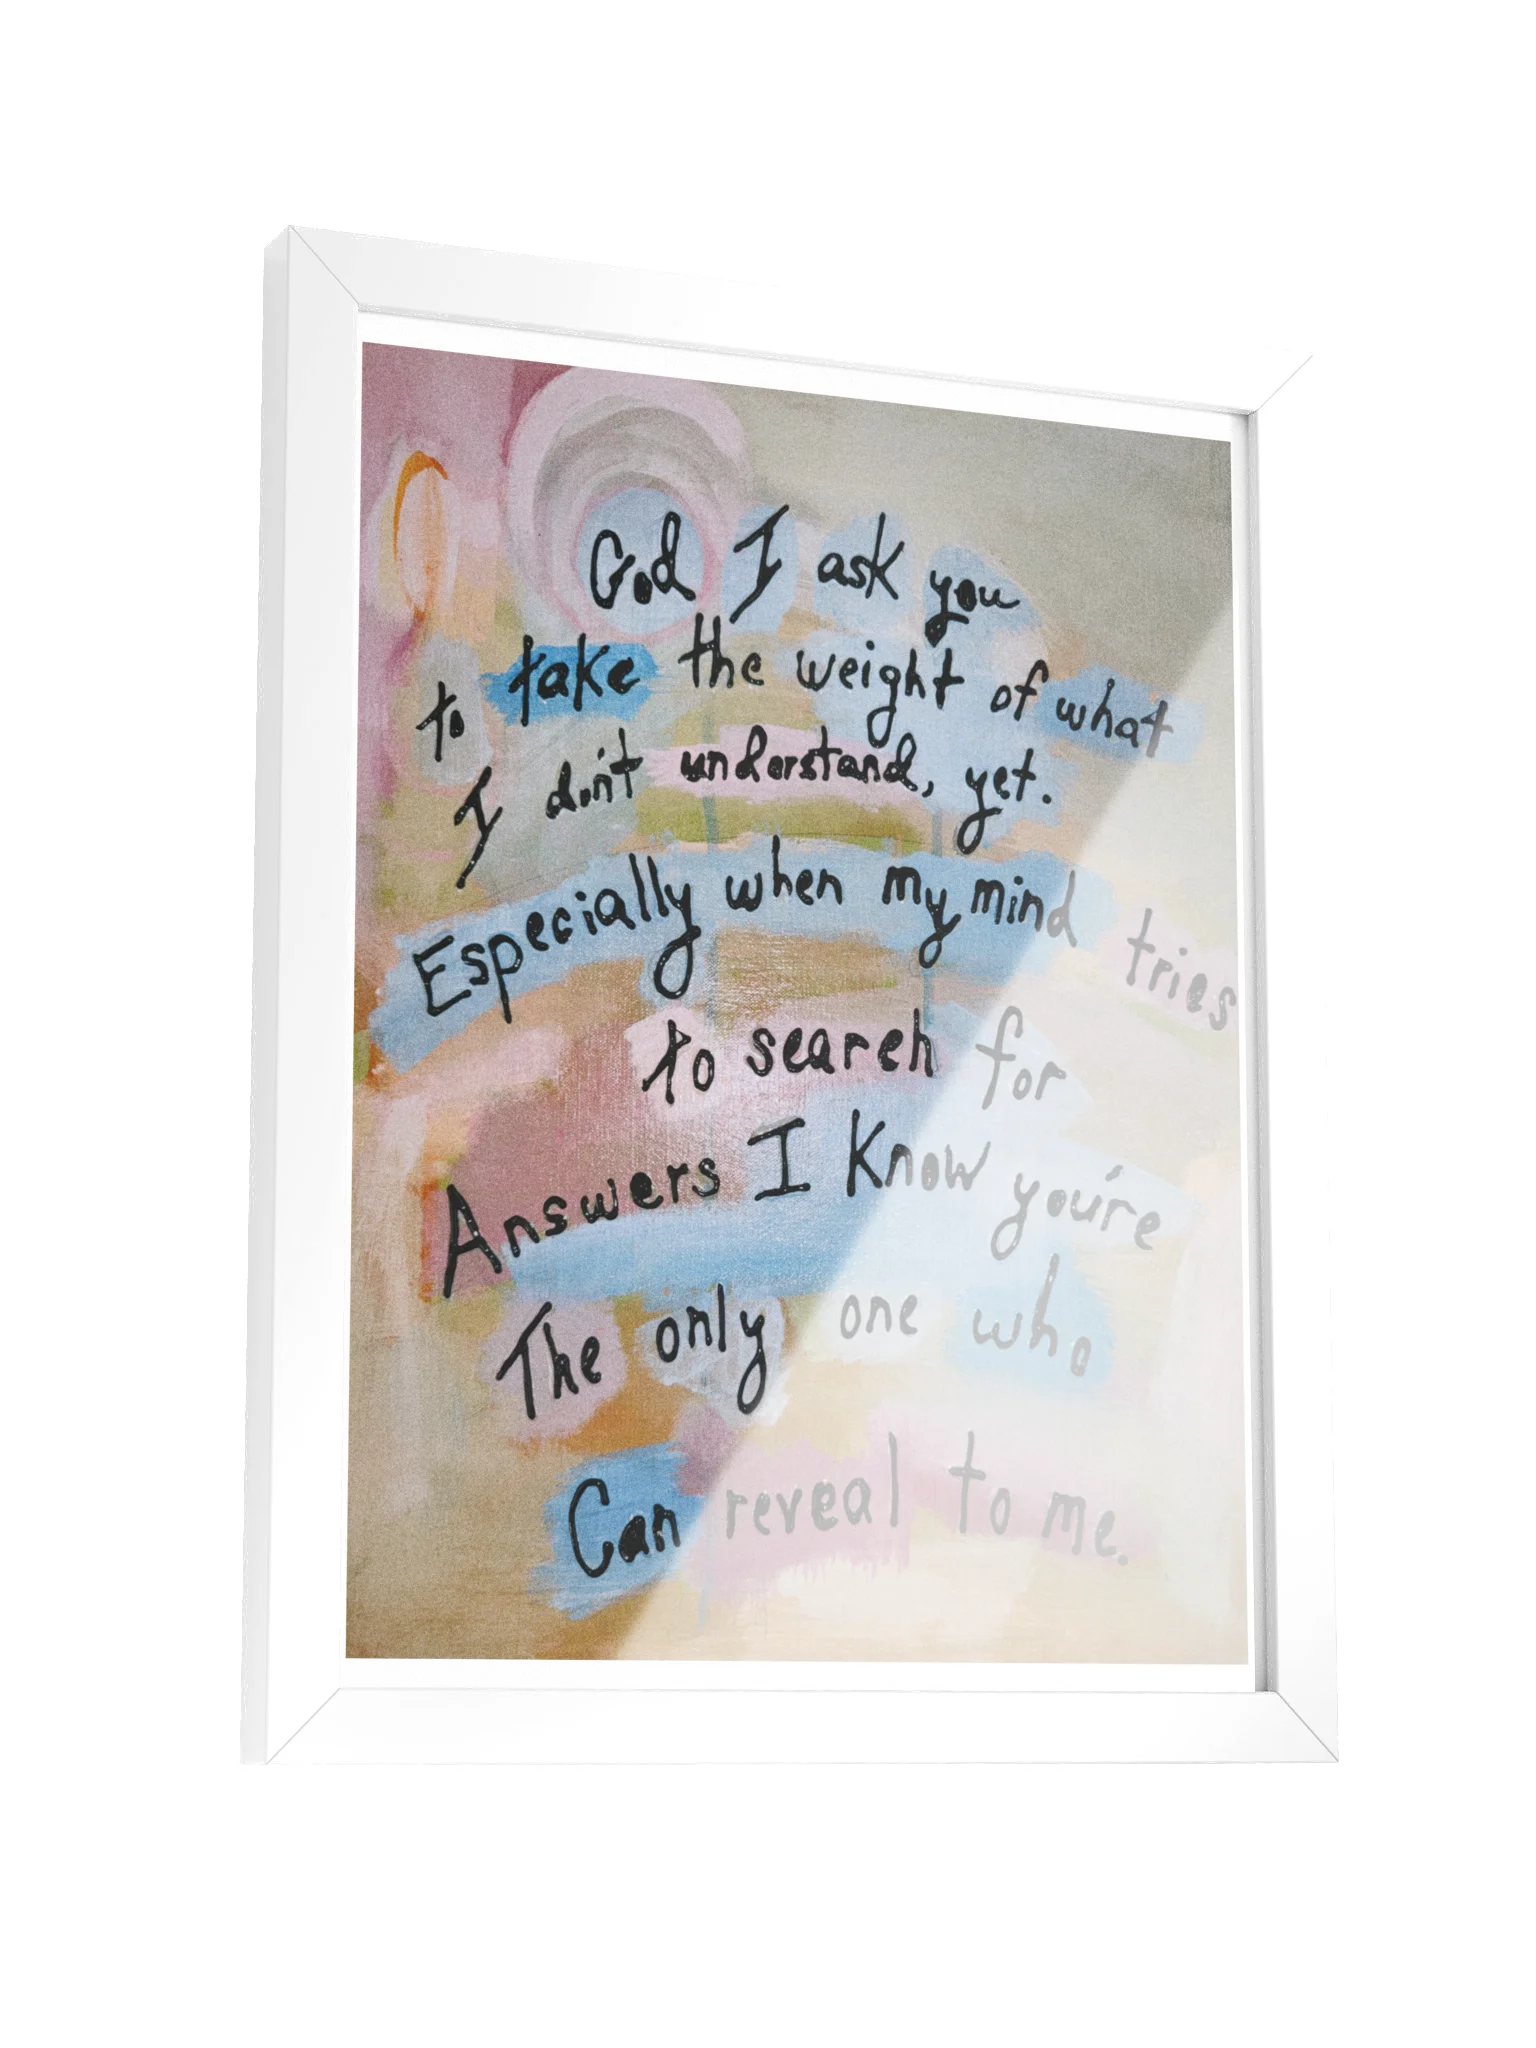 God I ask you
to take the weight of what
I don't understand, yet.
Especially when my mind tries
to search for
Answers I Know you're
The only one who
Can reveal to me.